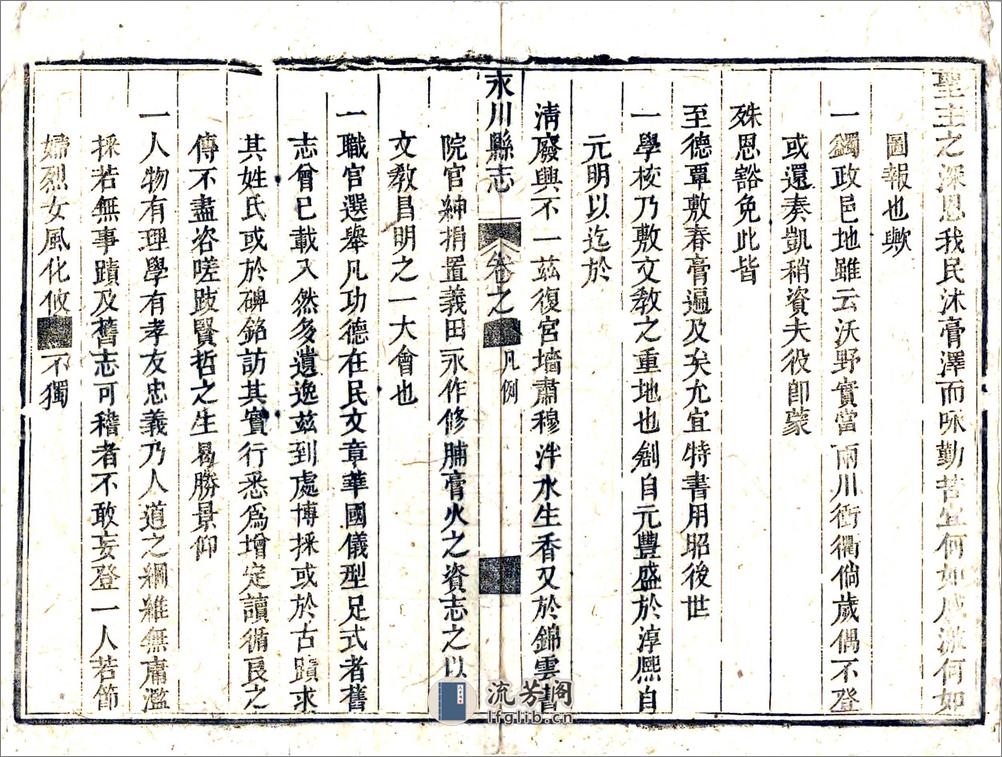 聖主之深恩我民沐膏澤而咏勤苦宜何如感激何如
圖報也歟
一蠲政邑地雖云沃野實當兩川衝衢倘歲偶不登
或還奏凱稍資夫役卽蒙
殊恩豁免此皆
至德覃敷春膏遍及矣允宜特書用昭後世
一學校乃敷文敎之重地也創自元豐盛於淳熙自
元明以迄於
淸廢興不一茲復宮墻肅穆泮水生香又於錦雲書
永川縣志
卷之
凡例
院官紳捐置義田永作修脯膏火之資志之以
文敎昌明之一大會也
一職官選舉凡功德在民文章華國儀型足式者舊
志曾已載入然多遺逸茲到處博採或於古蹟求
其姓氏或於碑銘訪其實行悉爲增定讀循良之
傳不盡咨嗟跂賢哲之生曷勝景仰
一人物有理學有孝友忠義乃人道之綱雖無庸濫
採若無事蹟及舊志可稽者不敢妄登一人若節
婦烈女風化攸不獨
流芳阁
lfglib.cn